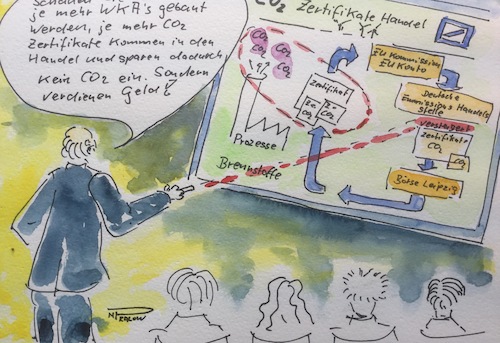 je mehr WKA's gebaut
werden, je mehr CO2
Zertifikate kommen in den
Handel und sparen dadurch
kein CO2 ein. Sondern
verdienen Geld?
CO2 Zertifikate Handel
CO2
CO2
CO2
CO2
Zertifikat
CO2
CO2
Prozesse
Brennstoffe
EU Kommission
EU Konto
Deutsche
Emmissions Handels
stelle
versteigert
Zertifikate
CO2
CO2
Börse Leipzig